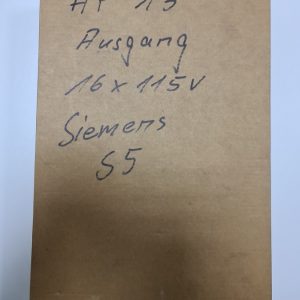 Ausgang
16 x 115V
Siemens
S5